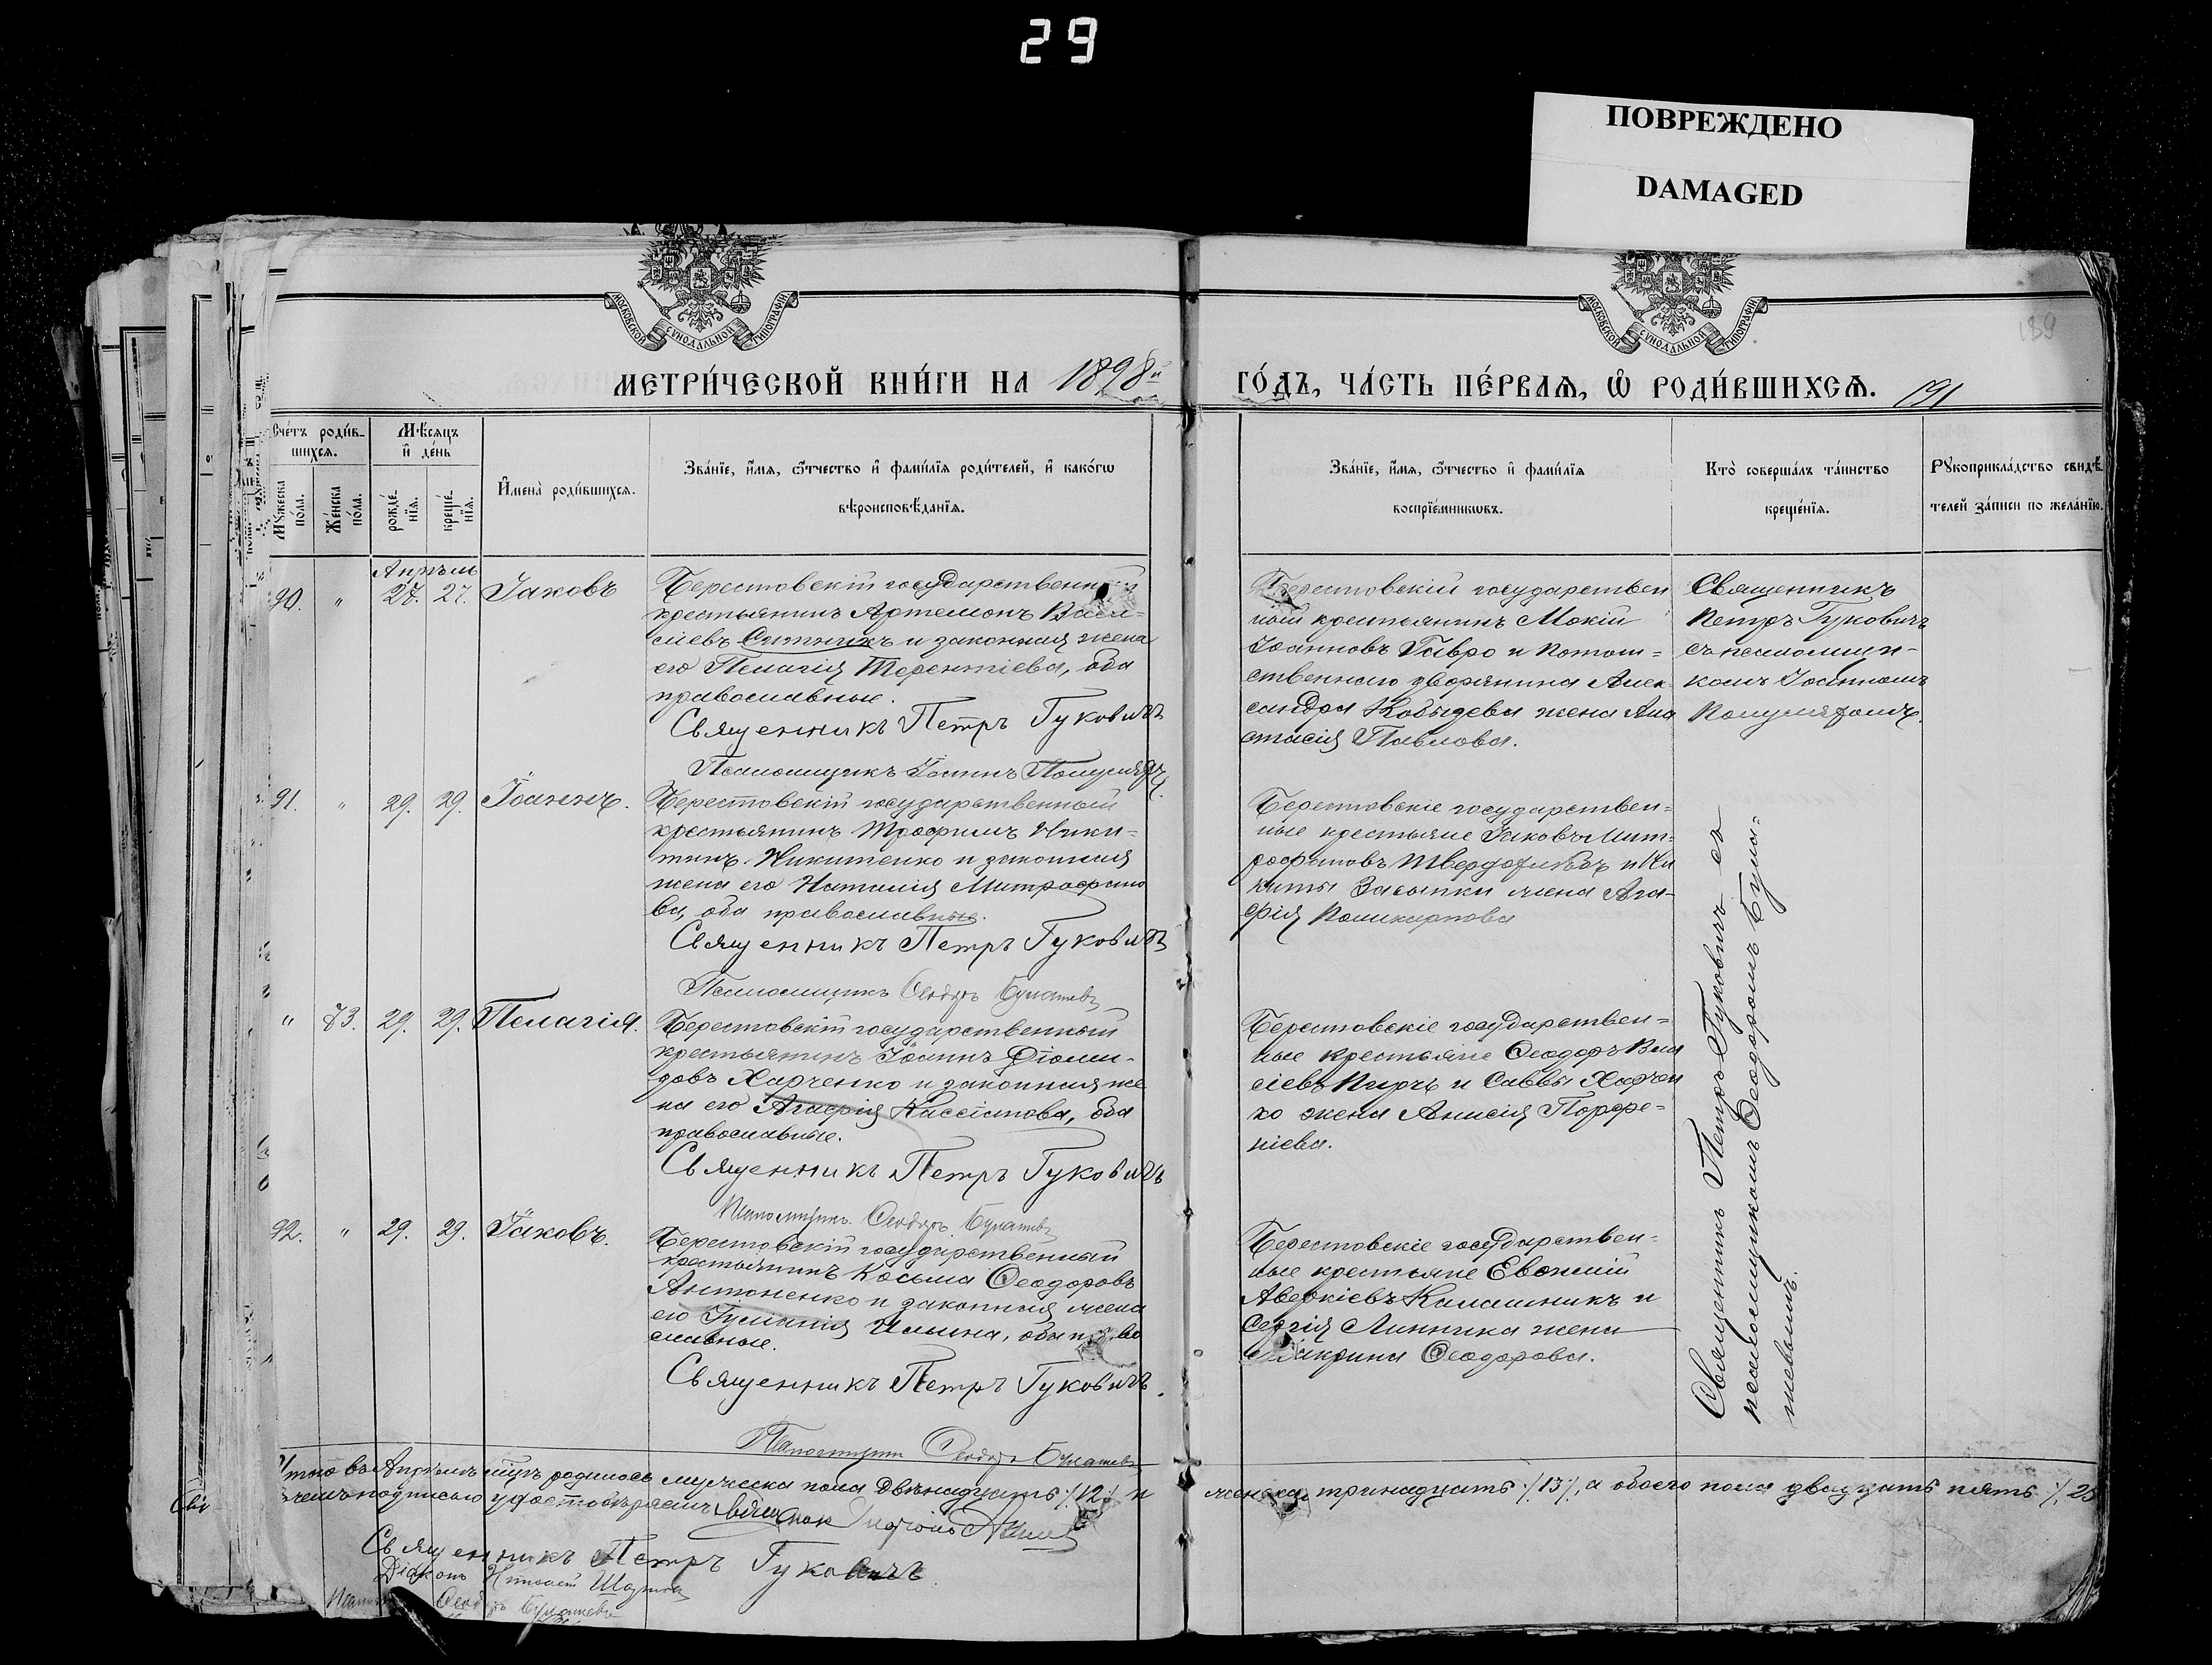 29
ПОВРЕЖДЕНО
DAMAGED
МОСКОВСКОЙ СѴНОДАЛЬНОЙ ТИПОГРАФІИ
МОСКОВСКОЙ СѴНОДАЛЬНОЙ ТИПОГРАФІИ
189
МЕТРИ́ЧЕСКОЙ КНИ́ГИ НА 1898й ГО́ДЪ, ЧА́СТЬ ПЕ́РВАѦ, Ѡ РОДИ́ВШИХСѦ. 191
Счетъ родив-
шихсѧ.
Мѣсѧцъ
и день
Мужеска
пола.
Женска
пола.
рожде-
нїѧ.
креще-
нїѧ.
Имена родившихсѧ.
Званїе, имѧ, ѿтчество и фамилїѧ родителей, и какогѡ
вѣроисповѣданїѧ.
Званїе, имѧ, ѿтчество и фамилїѧ
воспрїемникѡвъ.
Кто совершалъ таинство
крещенїѧ.
Рукоприкладство свидѣ-
телей записи по желанїю.
Апрѣль
90. " 27. 27. Іаковъ
Берестовскій государственный
крестьянинъ Артемонъ Васи-
ліевъ Сытникъ и законная жена
его Пелагія Терентіева, оба
православные.
Священникъ Петръ Гуковичъ
Псаломщикъ Іоаннъ
Берестовскій государствен
ный крестьянинъ Мокій
Іоанновъ Гавро и потом=
ственнаго дворянина Алек
сандра жена Ана
стасія Павлова.
Священникъ
Петръ Гуковичъ
съ псаломщи-
комъ Іоанномъ
91. " 29. 29. Іоаннъ.
Берестовскій государственный
крестьянинъ Трофимъ Ники=
тинъ Никитенко и законная
жена его Наталія Митрофано
ва, оба православные.
Священникъ Петръ Гуковичъ
Псаломщикъ Ѳеодоръ Булашевъ
Берестовскіе государствен=
ные крестьяне Іаковъ Мит=
рофановъ Твердохлѣбъ и Ни
киты Засыпки жена Ага-
фія Поликарпова
" 73. 29. 29. Пелагія.
Берестовскій государственный
крестьянинъ Іоаннъ Діоми-
довъ Харченко и законная же
на его Агафія Кассіанова, оба
православные.
Священникъ Петръ Гуковичъ
Псаломщикъ Ѳеодоръ Булашевъ
Берестовскіе государствен=
ные крестьяне Ѳеодоръ Вла
сіевъ и Саввы Харчен
ко жена Анисія Порфе=
ніева.
92. " 29. 29. Іаковъ.
Берестовскій государственный
крестьянинъ Косьма Ѳеодоровъ
Антоненко и законная жена
его Іуліанія Ильина, оба право
славные.
Священникъ Петръ Гуковичъ.
Псаломщикъ Ѳеодоръ Булашевъ
Берестовскіе государствен=
ные крестьяне Евѳимій
Аверкіевъ Калашникъ и
Сергія Линника жена
Макрина Ѳеодорова.
Священникъ Петръ Гуковичъ съ
псаломщикомъ Ѳеодоромъ Була-
шевымъ.
Итого въ Апрѣлѣ мцѣ родилось мужеска пола двѣнадцать /12/ и женска тринадцать /13/, а обоего пола двадцать пять /25
чемъ подписью удостовѣряемъ
Священникъ Петръ Гуковичъ
Діаконъ
Ѳеодоръ Булашевъ